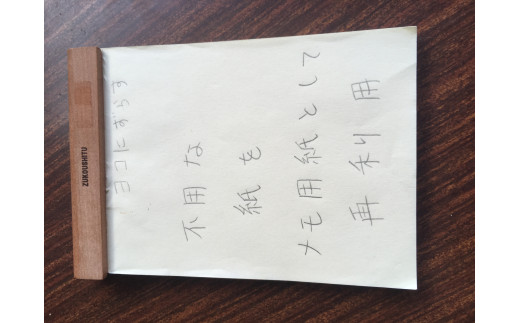 ZUKOUSHITU
ヨコにずらす
不用な
紙を
メモ用紙として
再利用